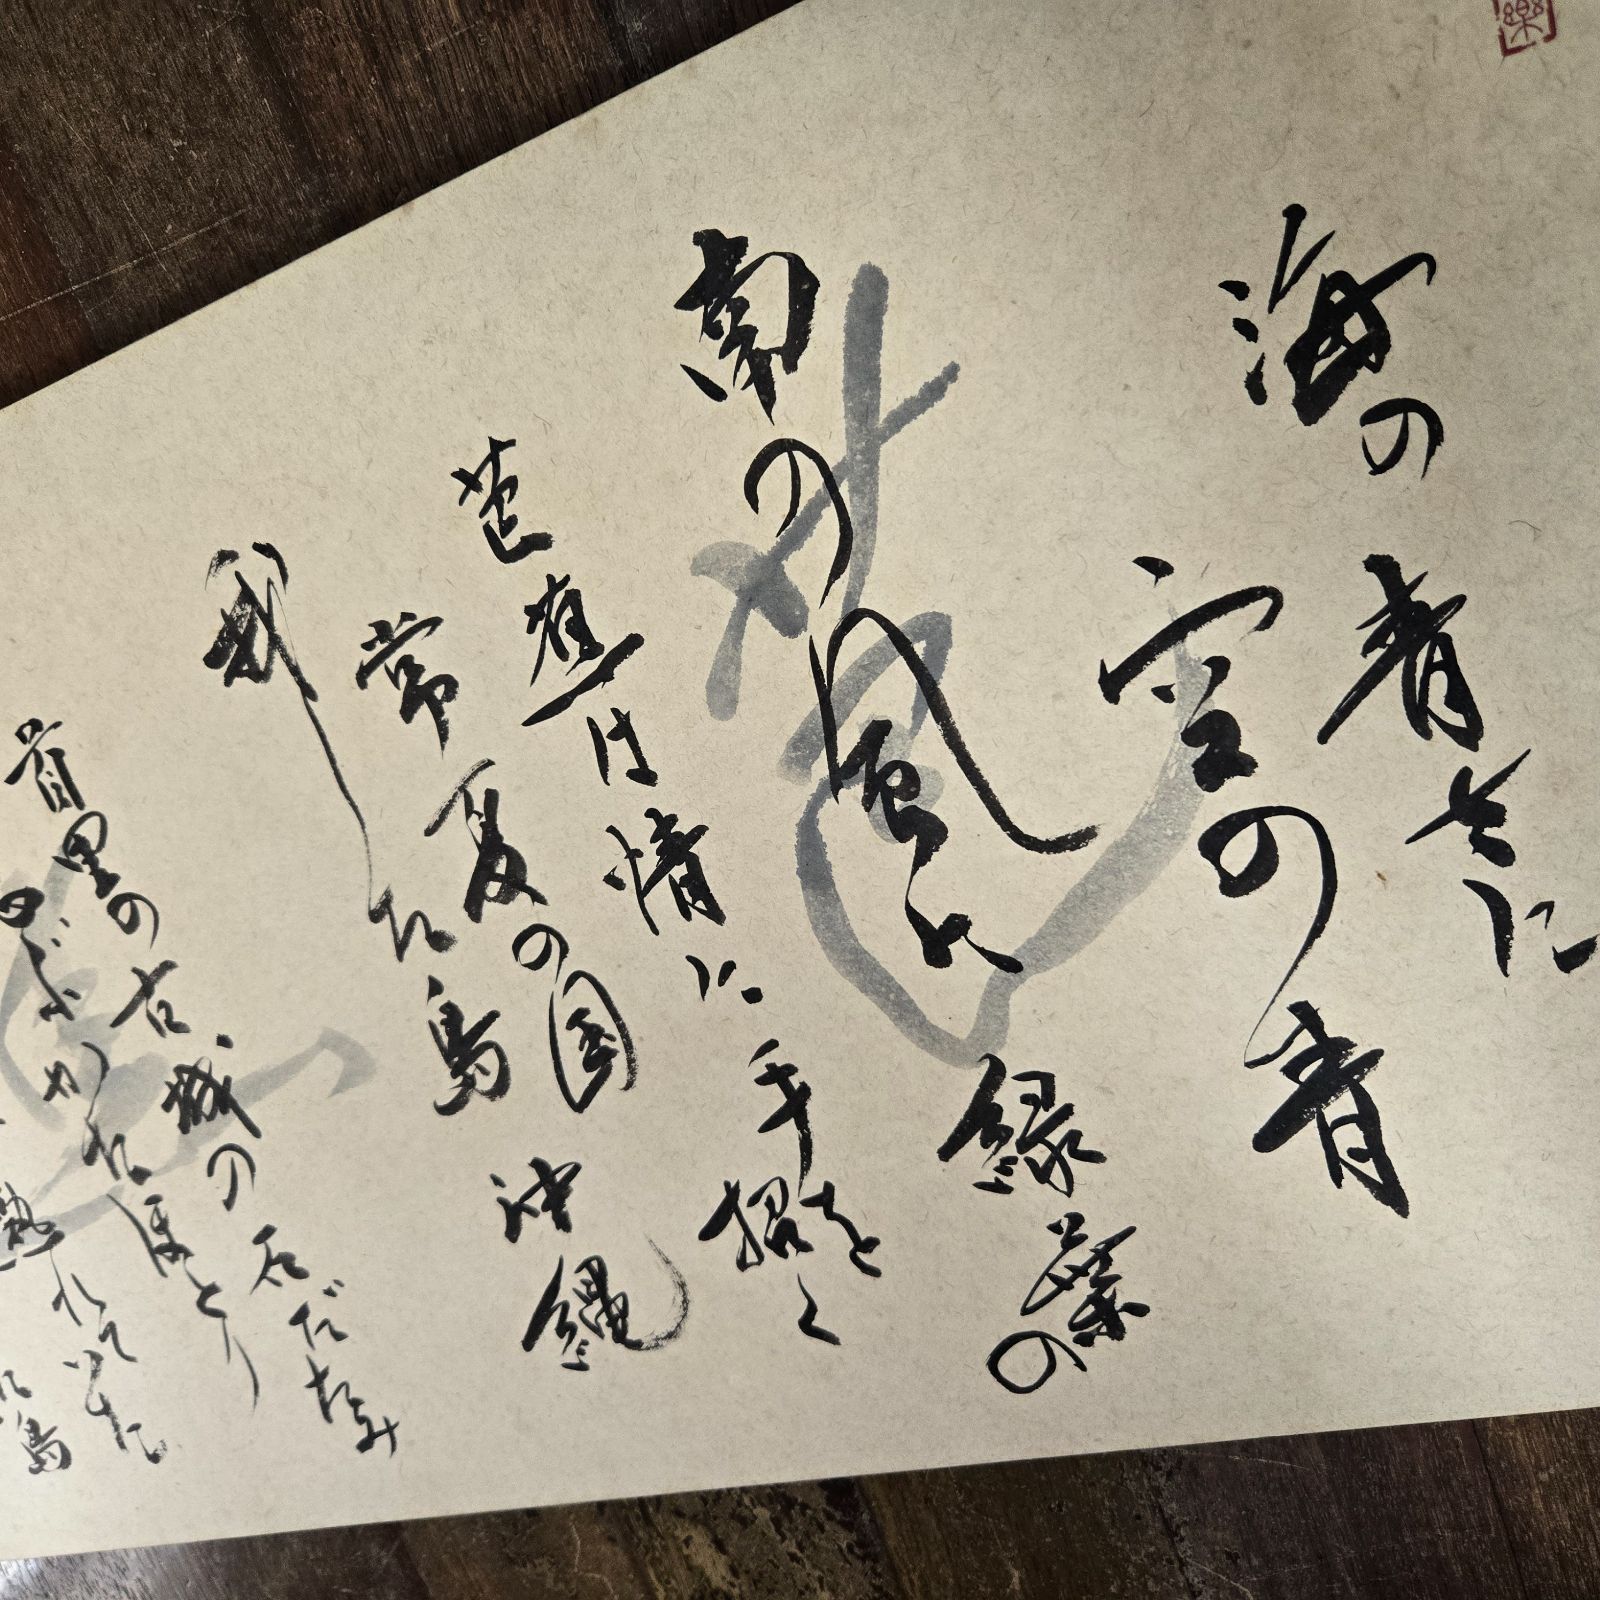 海の青さに
空の青
南の風に 緑葉の
芭蕉は情に 手を招く
常夏の国
我した島 沖縄
首里の古城の 石だたみ
のぶ かたほとり
熟れていた
た島